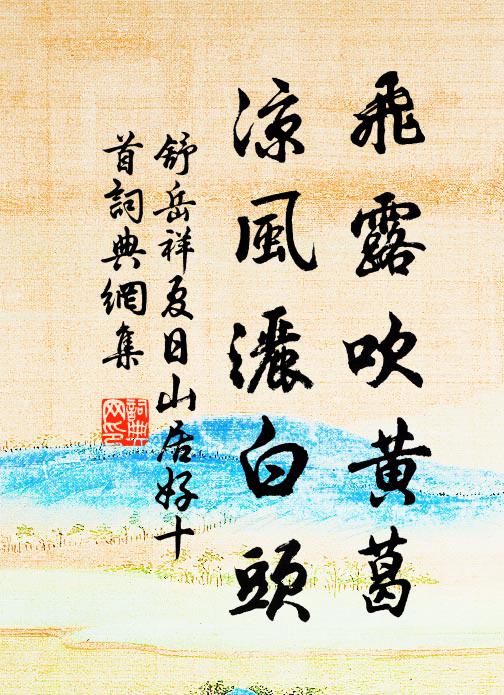 飛露吹黃葛
涼風灑白頭
舒岳祥夏日山居好十
首詞典網集
詞典網印